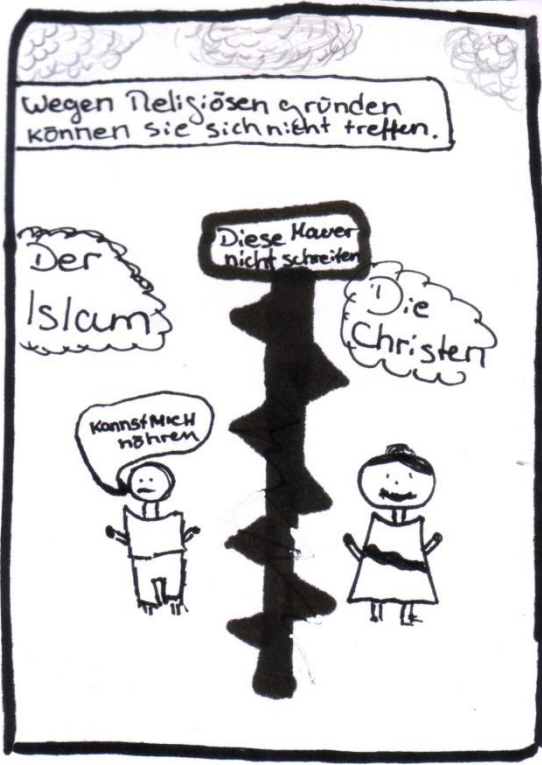 Wegen Religiösen gründen
können sie sich nicht treffen.
Diese Mauer
nicht schreiten
Der
Islam
Die
Christen
Kannst MICH
nöhren